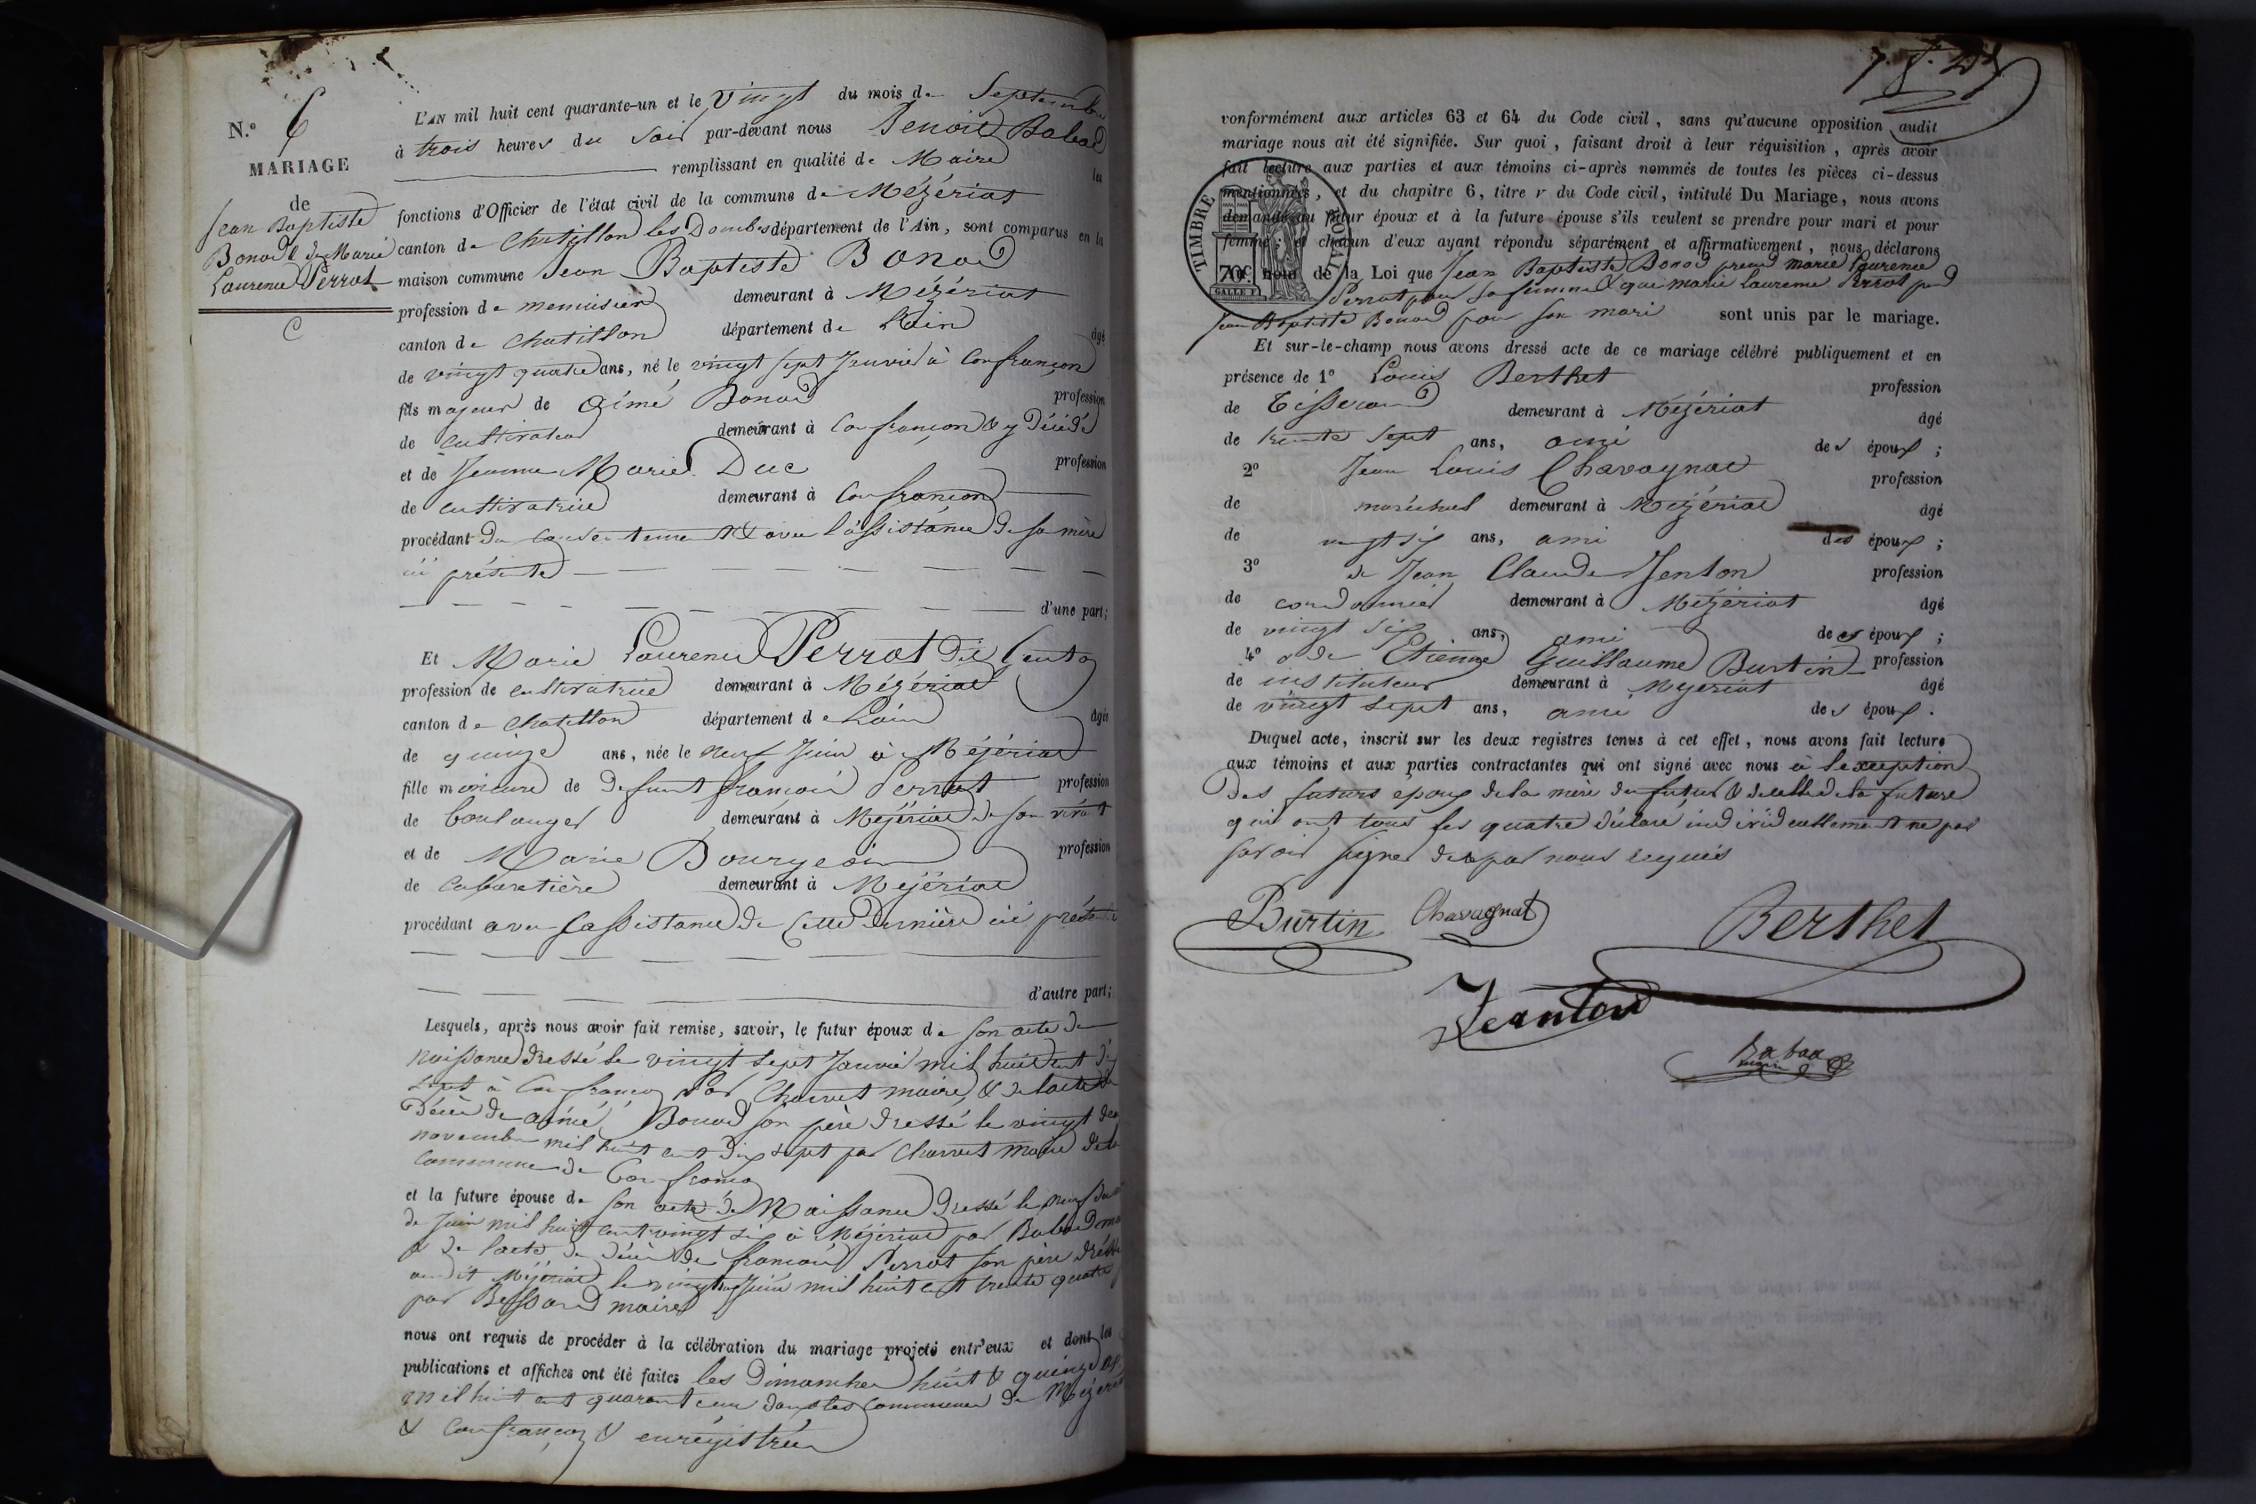 N.º 6
MARIAGE
de
Jean Baptiste
Bonod & de Marie
Laurence Perrot
C
L'AN mil huit cent quarante-un et le vingt du mois de Septembre
à trois heures du soir par-devant nous Benoit Babad
remplissant en qualité de Maire les
fonctions d'Officier de l'état civil de la commune de Mézériat
canton de Chatillon les Dombes département de l'Ain, sont comparus en la
maison commune Jean Baptiste Bonod
profession de menuisier demeurant à Mézériat
canton de Chatillon département de l'ain âgé
de vingt quatre ans, né le vingt sept Janvier à Confrançon
fils majeur de Aimé Bonod profession
de cultivateur demeurant à Confrançon & y décédé
et de Jeanne Marie Duc profession
de cultivatrice demeurant à Confrançon
procédant du consentement & avec l'assistance de sa mère
ici présente
d'une part;
Et Marie Laurence Perrot dit
profession de cultivatrice demeurant à Mézériat
canton de Chatillon département de L'ain âgée
de quinze ans, née le neuf Juin à Mézériat
fille mineure de defunt françois Perrot profession
de boulanger demeurant à Mézériat de son vivant
et de Marie Bourgeois profession
de cabaretière demeurant à Mézériat
procédant avec l'assistance de cette dernière ici présente
d'autre part;
Lesquels, après nous avoir fait remise, savoir, le futur époux de son acte de
naissance dressé le vingt sept Janvier mil huit cent dix
sept à Confrançon par Charvet maire, & de l'acte de
décès de aimé Bonod son père dressé le vingt deux
novembre mil huit cent dix sept par Charvet maire de la
commune de Confrançon
et la future épouse de son acte de Naissance dressé le neuf du
de Juin mil huit cent vingt six à Mézériat par Babad maire
& de l'acte de décès de françois Perrot son père dressé
audit Mézériat le Juin mil huit cent trente quatre
par Bessard maire
nous ont requis de procéder à la célébration du mariage projeté entr'eux et dont les
publications et affiches ont été faites les Dimanches huit & quinze
mil huit cent quarante un dans les communes de Mézériat
& Confrançon & enregistrées
vonformément aux articles 63 et 64 du Code civil, sans qu'aucune opposition audit
mariage nous ait été signifiée. Sur quoi, faisant droit à leur réquisition, après avoir
fait lecture aux parties et aux témoins ci-après nommés de toutes les pièces ci-dessus
mentionnées, et du chapitre 6, titre v du Code civil, intitulé Du Mariage, nous avons
demandé au futur époux et à la future épouse s'ils veulent se prendre pour mari et pour
femme; et chacun d'eux ayant répondu séparément et affirmativement, nous déclarons
au nom de la Loi que Jean Baptiste Bonod prend marie Laurence
Perrot pour sa femme & que marie laurence Perrot prend
Jean Baptiste Bonod pour son mari sont unis par le mariage.
TIMBRE ROYAL
70 c.
Et sur-le-champ nous avons dressé acte de ce mariage célébré publiquement et en
présence de 1º Louis Berthet profession
de Tisserand demeurant à Mézériat âgé
de trente sept ans, ami des époux;
2º Jean Louis Chavagnat profession
de maréchal demeurant à Mézériat âgé
de vingt six ans, ami des époux;
3º de Jean Claude Jenton profession
de cordonnier demeurant à Mézériat âgé
de vingt six ans, ami des époux;
4º & de Etienne Guillaume Burtin profession
de instituteur demeurant à Mézériat âgé
de vingt sept ans, ami des époux.
Duquel acte, inscrit sur les deux registres tenus à cet effet, nous avons fait lecture
aux témoins et aux parties contractantes qui ont signé avec nous à l'exception
des futurs époux de la mère du futur & de celle de la future
qui ont tous les quatre déclaré individuellement ne pas
savoir signer de ce par nous requis
Burtin Chavagnat Berthet
Jeanton
Babad
maire